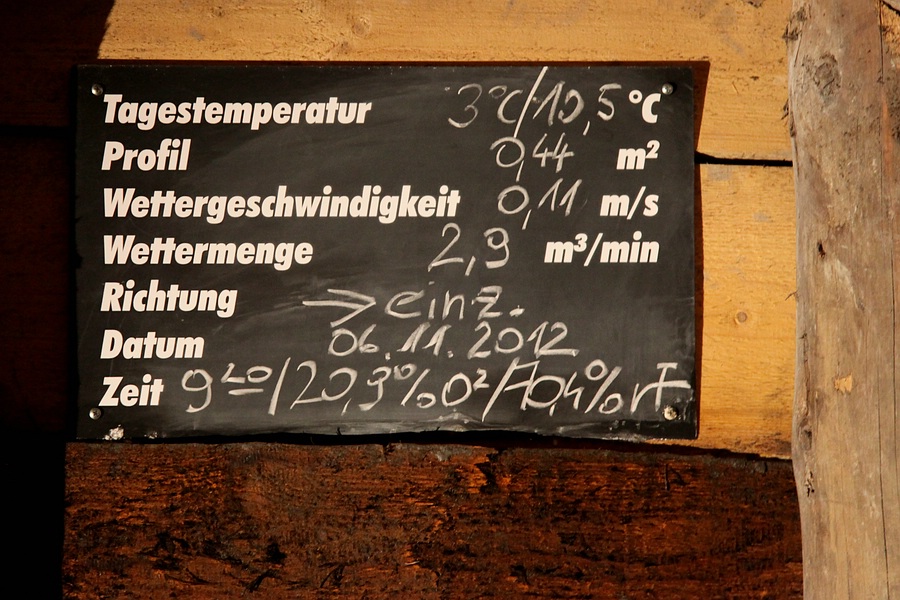 Tagestemperatur 3°C/10,5 °C
Profil 0,44 m²
Wettergeschwindigkeit 0,11 m/s
Wettermenge 2,9 m³/min
Richtung → einz.
Datum 06.11.2012
Zeit 9²⁰/20,9% O²/70,4% rF